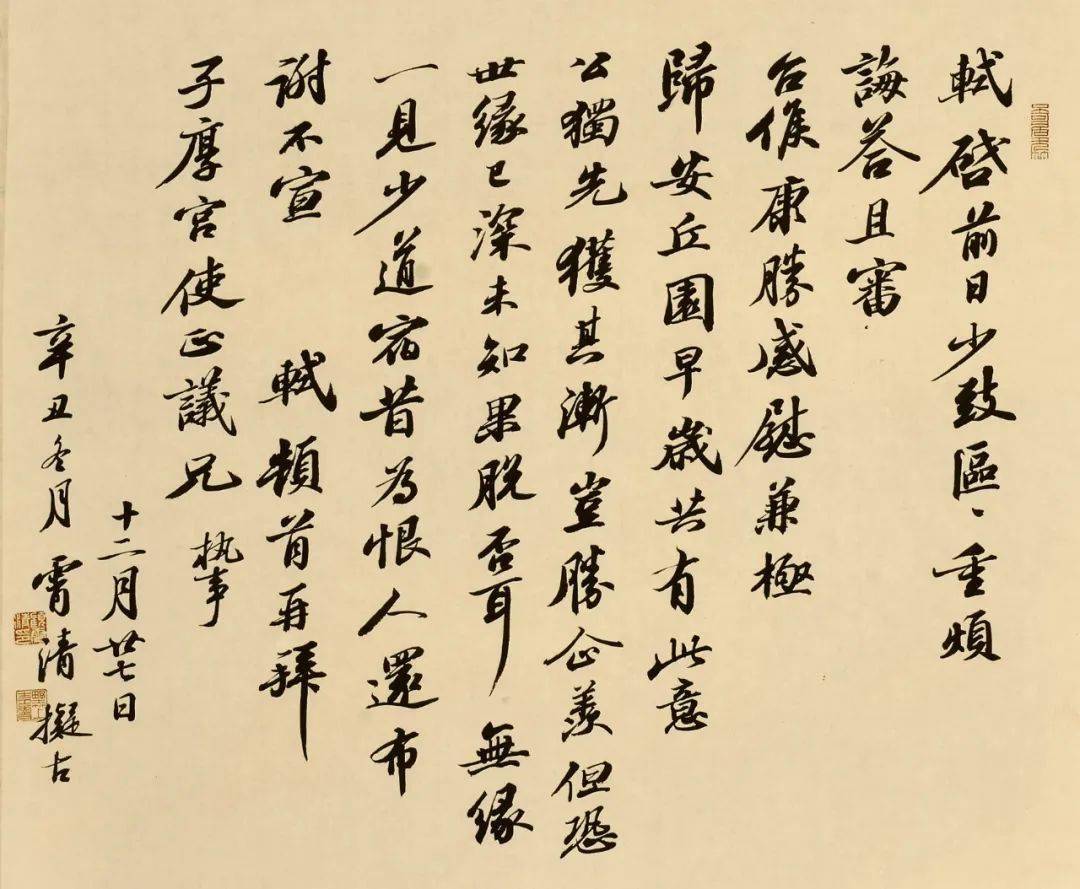 軾啓前日少致區〻重煩
誨荅且審
台候康勝感慰兼極
歸安丘園早歲共有此意
公獨先獲其漸豈勝企羨但恐
世緣已深未知果脫否耳無緣
一見少道宿昔為恨人還布
謝不宣 軾頓首再拜
子厚宮使正議兄 執事
十二月廿七日
辛丑冬月霄清擬古